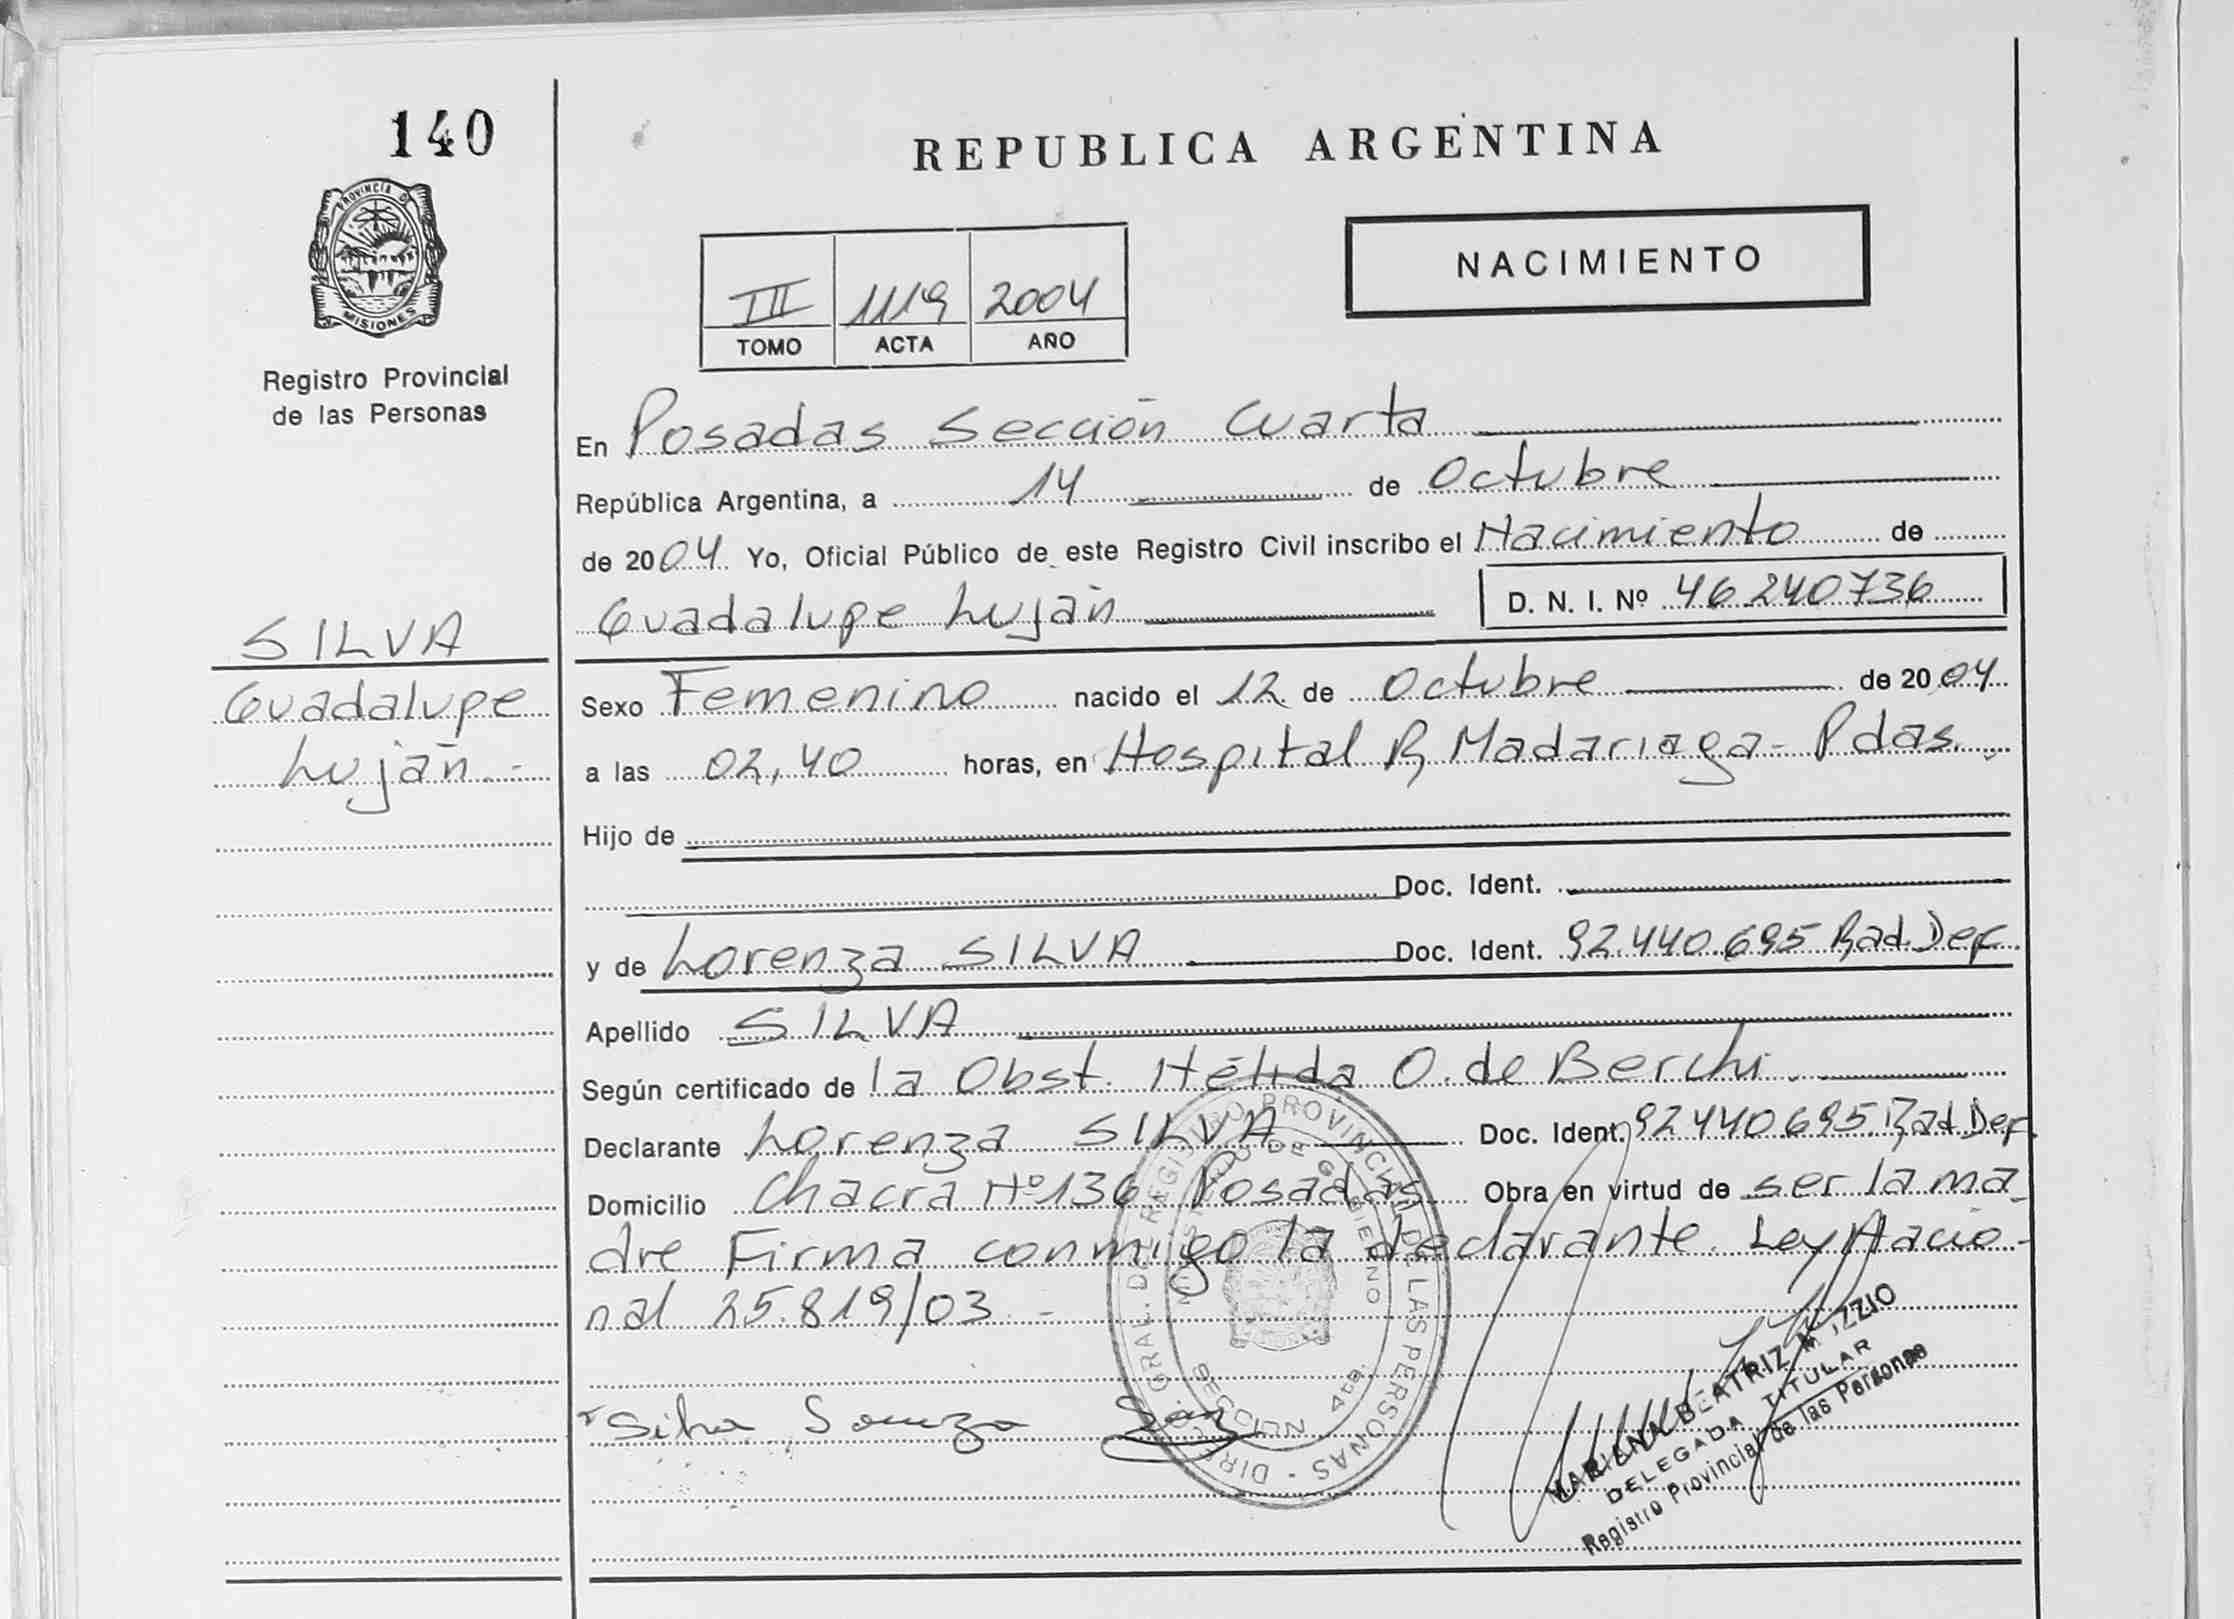 140
REPUBLICA ARGENTINA
PROVINCIA DE
MISIONES
NACIMIENTO
III 1119 2004
TOMO ACTA AÑO
Registro Provincial
de las Personas
En Posadas Sección Cuarta
República Argentina, a 14 de Octubre
de 2004 Yo, Oficial Público de este Registro Civil inscribo el Nacimiento de
Guadalupe Luján D. N. I. Nº 46.240.736
SILVA
Guadalupe
Luján.-
Sexo Femenino nacido el 12 de Octubre de 2004
a las 02,40 horas, en Hospital R Madariaga - Pdas.
Hijo de
Doc. Ident.
y de Lorenza SILVA Doc. Ident. 92.440.695 Rad. Def.
Apellido SILVA
Según certificado de la Obst. Hélida O. de Berchi.
Declarante Lorenza SILVA Doc. Ident. 92440695 Rad Def.
Domicilio Chacra Nº 136 Posadas Obra en virtud de ser la ma
dre Firma conmigo la declarante. Ley Nacio-
nal 25.819/03.-
DIREC. GRAL. DE REGISTRO PROVINCIAL DE LAS PERSONAS -
MINISTERIO DE GOBIERNO
SECCION 4ta.
Silva
MARIANA BEATRIZ
DELEGADA TITULAR
Registro Provincial de las Personas